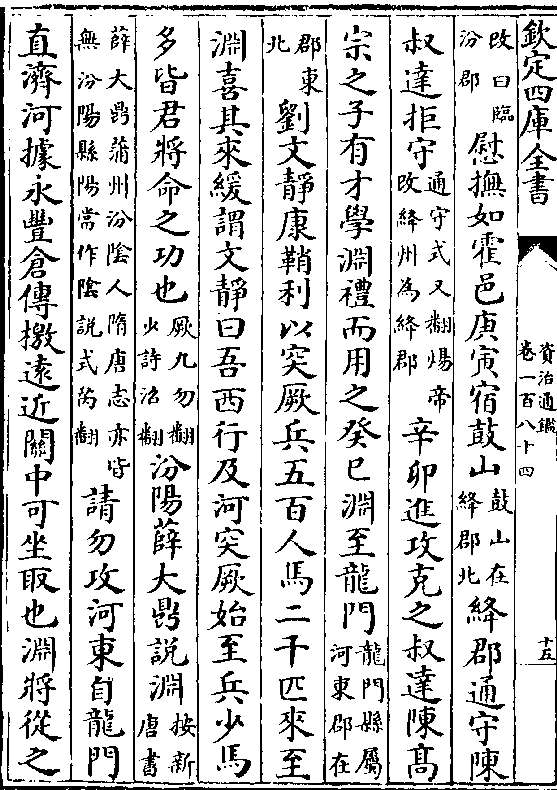 欽定四庫全書
資治通鑑
卷一百八十四
十五
改曰臨汾郡慰撫如霍邑庚寅宿鼓山鼓山在絳郡北絳郡通守陳
叔達拒守通守式又翻煬帝改絳州為絳郡辛卯進攻克之叔達陳高
宗之子有才學淵禮而用之癸巳淵至龍門龍門縣屬河東郡在
郡東北劉文靜康鞘利以突厥兵五百人馬二千匹來至
淵喜其來緩謂文靜曰吾西行及河突厥始至兵少馬
多皆君將命之功也厥九勿翻少詩沼翻汾陽薛大鼎說淵按新唐書
薛大鼎蒲州汾陰人隋唐志亦皆無汾陽縣陽當作陰說式芮翻請勿攻河東自龍門
直濟河據永豐倉傳檄遠近關中可坐取也淵將從之